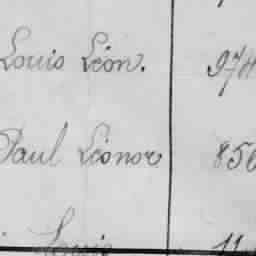 Louis Léon. 974
Paul Léonor 856
Louis 11